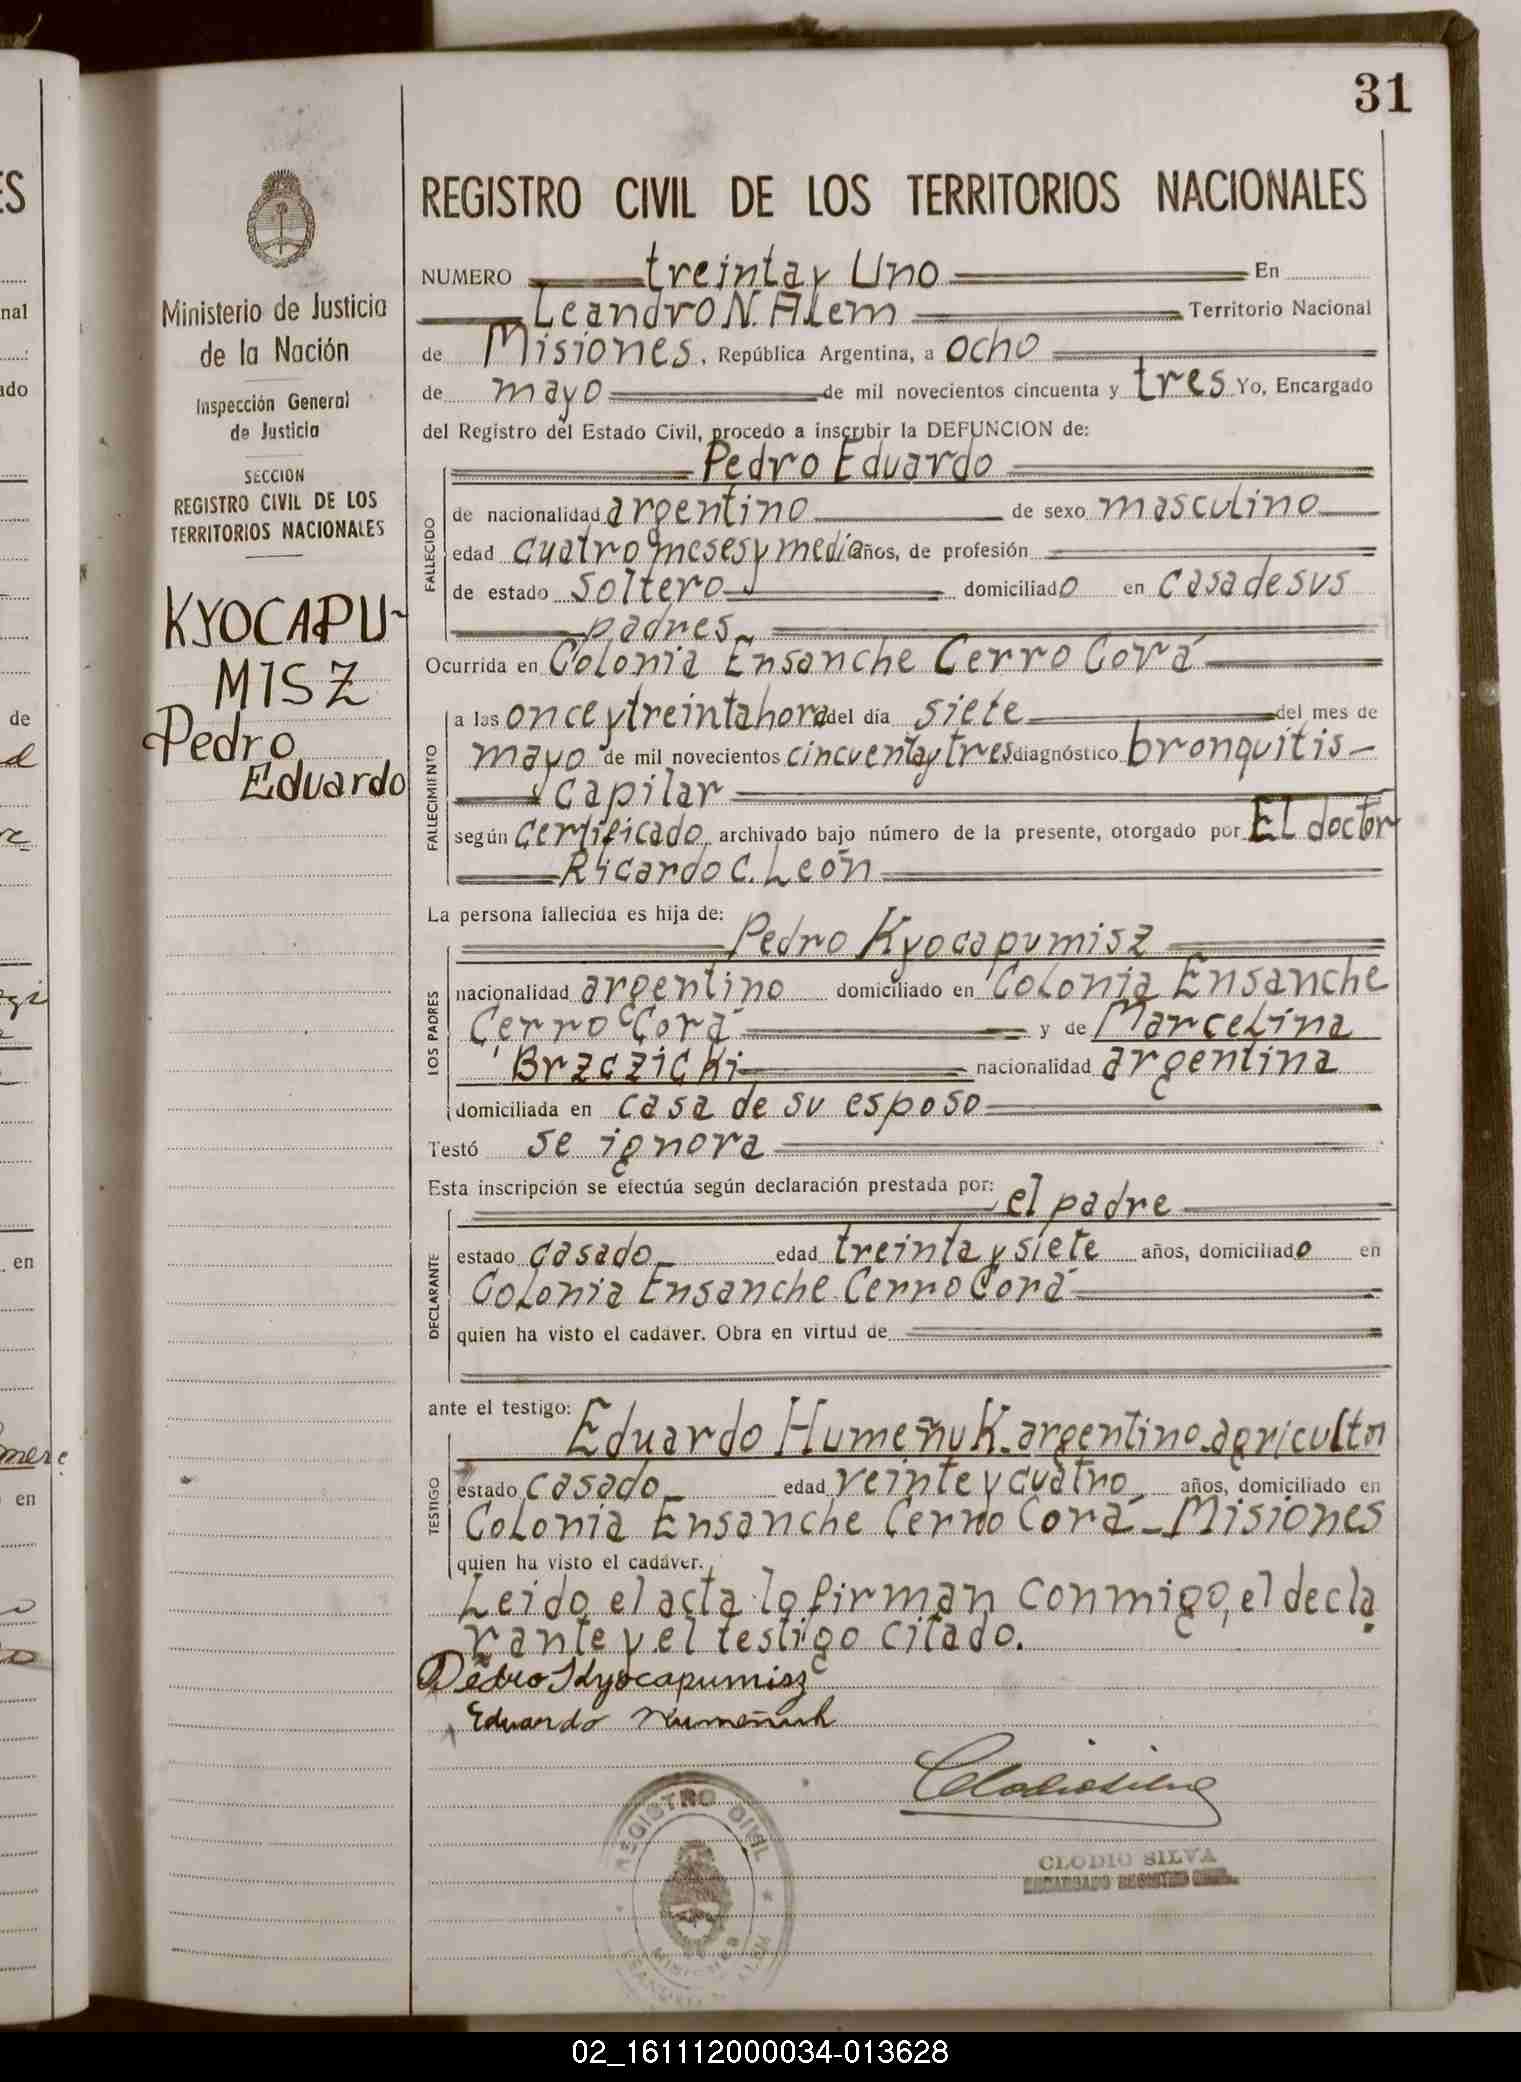 31
REGISTRO CIVIL DE LOS TERRITORIOS NACIONALES
Ministerio de Justicia
de la Nación
Inspección General
de Justicia
SECCION
REGISTRO CIVIL DE LOS
TERRITORIOS NACIONALES
KYOCAPU-
MISZ
Pedro
Eduardo
NUMERO treinta y Uno En
Leandro N. Alem Territorio Nacional
de Misiones, República Argentina, a ocho
de mayo de mil novecientos cincuenta y tres Yo, Encargado
del Registro del Estado Civil, procedo a inscribir la DEFUNCION de:
Pedro Eduardo
FALLECIDO
de nacionalidad argentino de sexo masculino
edad cuatro meses y medio años, de profesión
de estado soltero domiciliado en casa de sus
padres
Ocurrida en Colonia Ensanche Cerro Corá
FALLECIMIENTO
a las once y treinta horas del día siete del mes de
mayo de mil novecientos cincuenta y tres diagnóstico bronquitis
capilar
según certificado archivado bajo número de la presente, otorgado por El doctor
Ricardo C. León
La persona fallecida es hija de:
Pedro Kyocapumisz
LOS PADRES
nacionalidad argentino domiciliado en Colonia Ensanche
Cerro Corá y de Marcelina
Brzczicki nacionalidad argentina
domiciliada en casa de su esposo
Testó se ignora
Esta inscripción se efectúa según declaración prestada por: el padre
DECLARANTE
estado casado edad treinta y siete años, domiciliado en
Colonia Ensanche Cerro Corá
quien ha visto el cadáver. Obra en virtud de
ante el testigo:
Eduardo Humeñuk argentino agricultor
TESTIGO
estado casado edad veinte y cuatro años, domiciliado en
Colonia Ensanche Cerro Corá - Misiones
quien ha visto el cadáver.
Leido el acta lo firman conmigo, el decla
rante y el testigo citado.
Pedro Kyocapumisz
Eduardo Humeñuk
REGISTRO CIVIL
MISIONES
CLODIO SILVA
ENCARGADO REGISTRO CIVIL
02_161112000034-013628